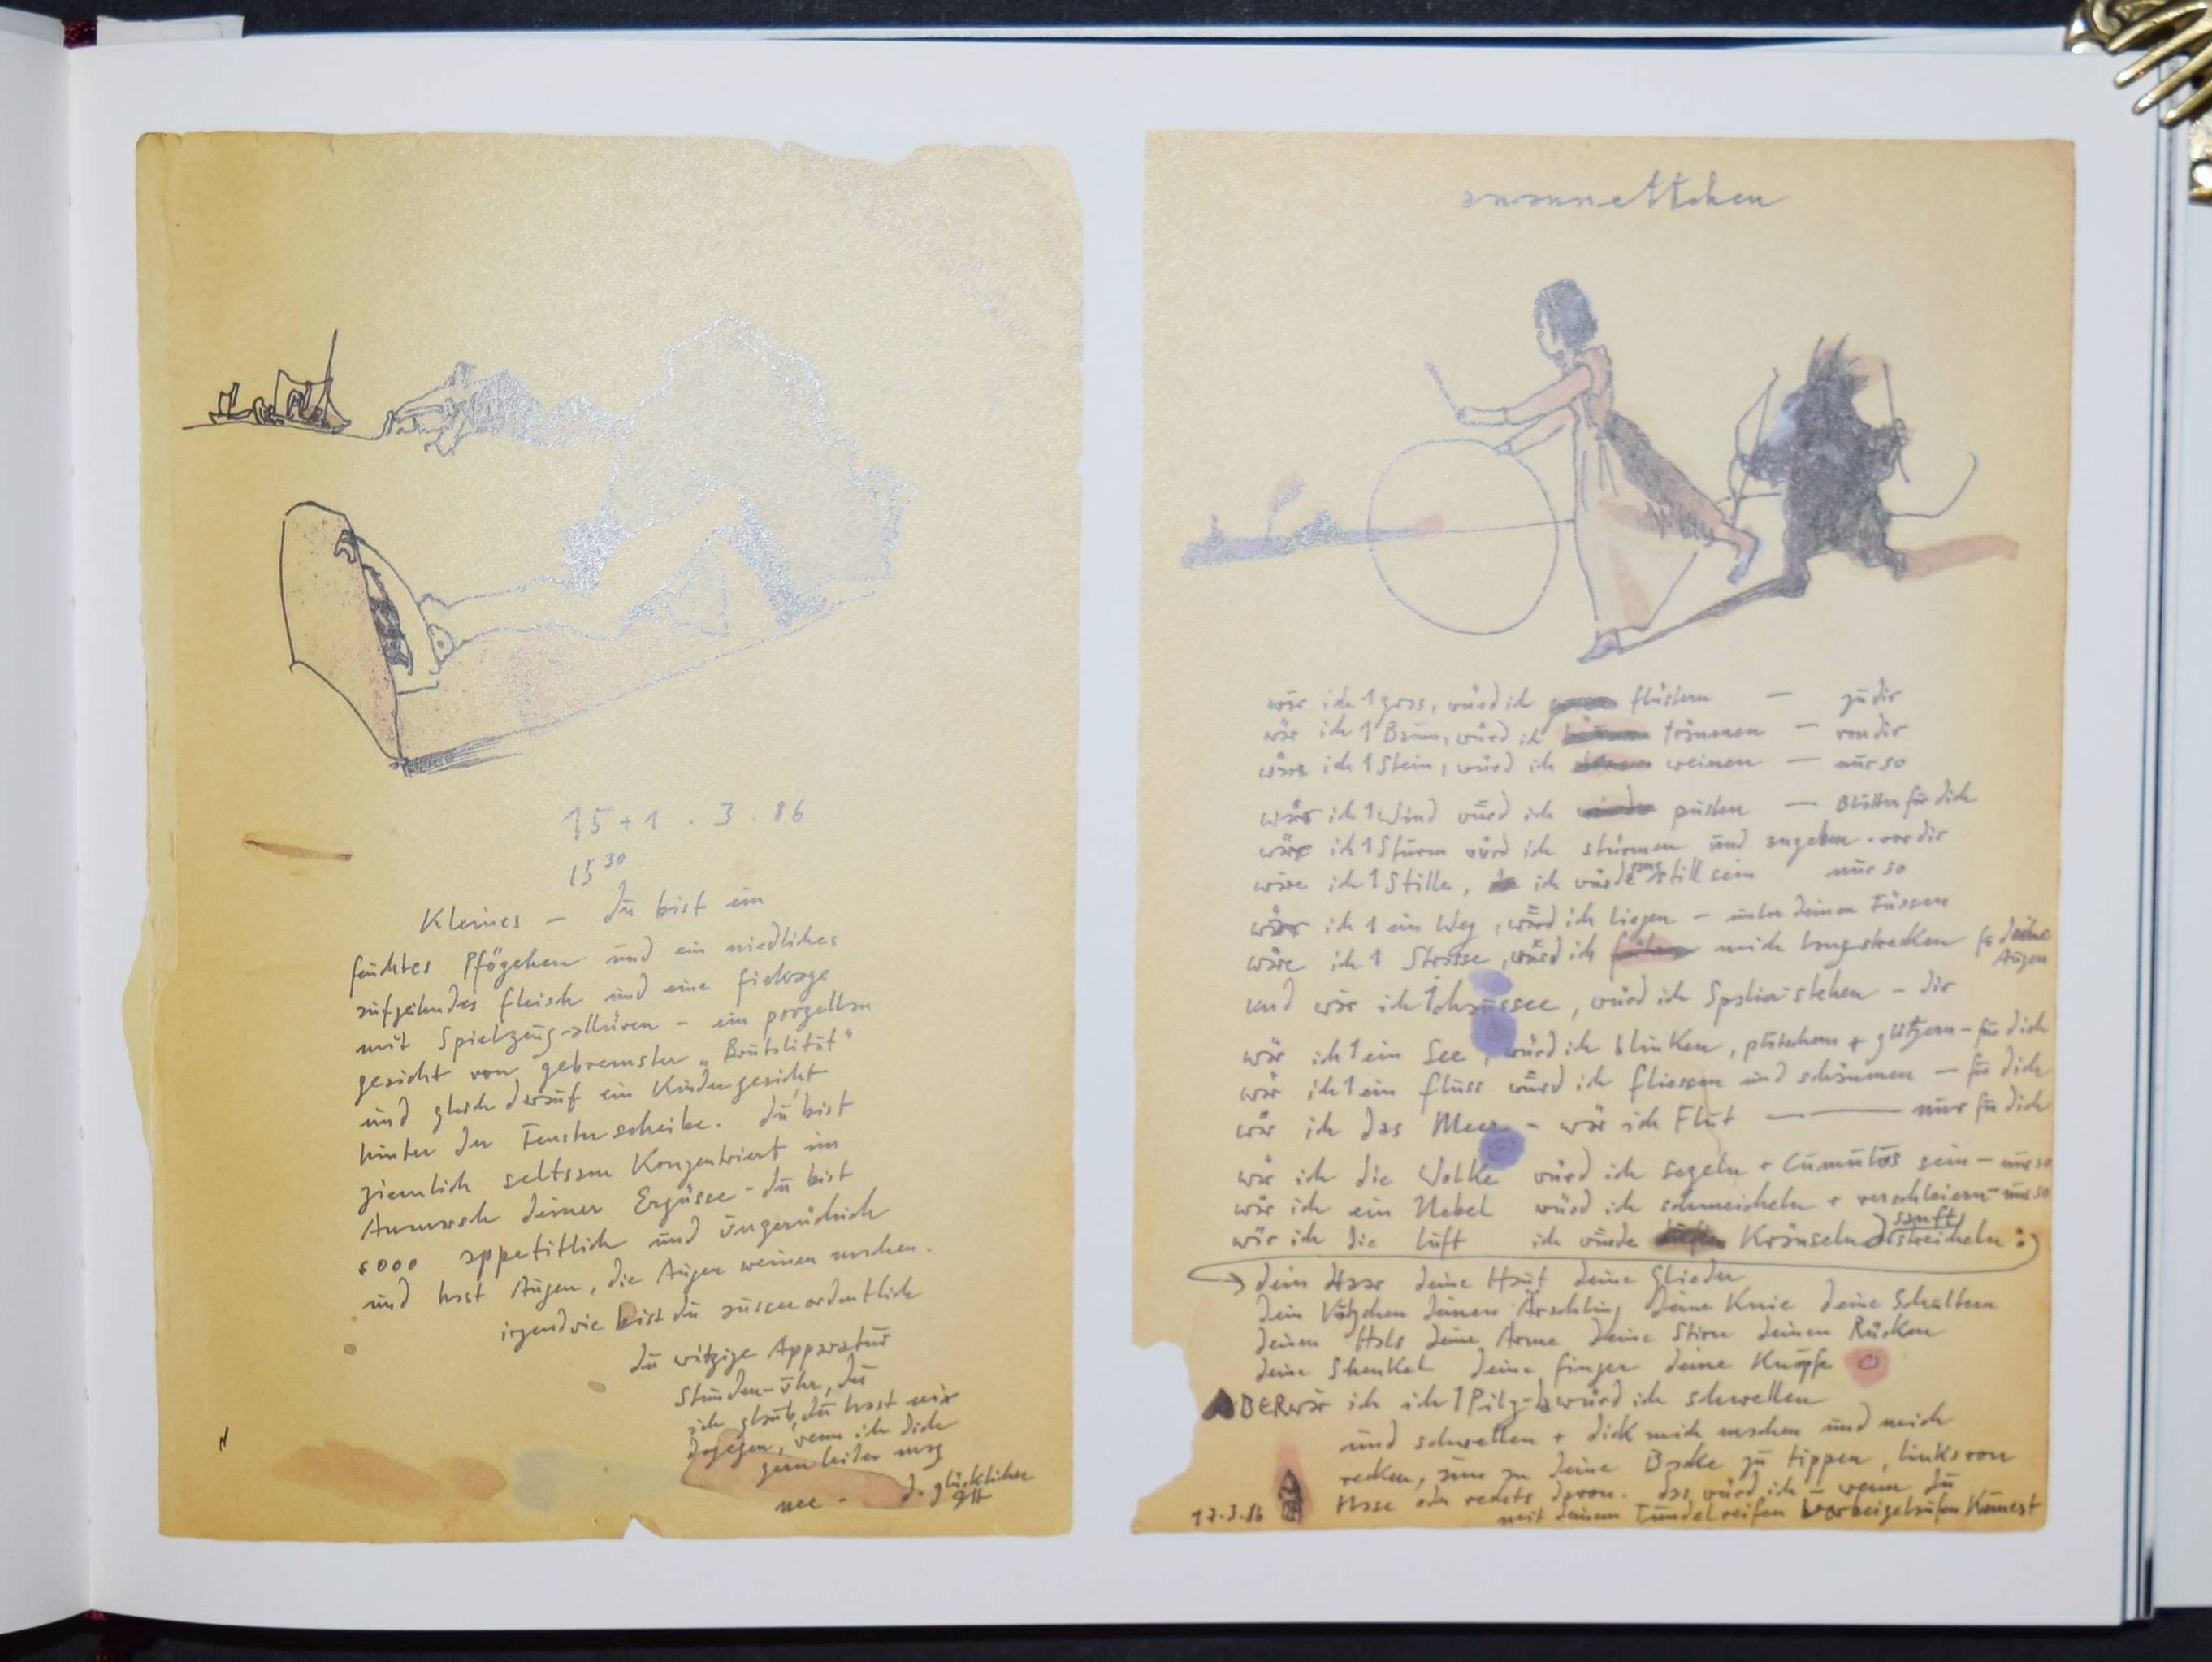 15 + 1 . 3 . 86
15 30
Kleines – du bist ein
feuchtes Pfögchen und ein niedliches
aufgehendes fleisch und eine
mit Spielzeug-allüren – ein porzellan
gesicht von gebremster „Brutalität“
und gleich darauf ein Kindergesicht
hinter der Fensterscheibe. du bist
ziemlich seltsam Konzentriert im
Anmarsch deiner Ergüsse – du bist
sooo appetitlich und
und hast Augen, die Augen weinen machen.
irgendwie bist du aussenordentlich
du witzige Apparatur
Stunden-Uhr, du
ich glaub, du hast nix
dagegen, wenn ich dich
gern leiden mag
nee – d. glücklicher
HJ
susannettchen
wär ich 1 gras, würd ich flüstern — zu dir
wär ich 1 Baum, würd ich träumen — von dir
wäre ich 1 Stein, würd ich weinen — nur so
wär ich 1 Wind würd ich pusten — Blätter für dich
wär ich 1 Sturm würd ich stürmen und angeben - vor dir
wäre ich 1 Stille, ich würde ganz still sein nur so
wär ich 1 ein Weg, würd ich liegen – unter deinen Füssen
wäre ich 1 Strasse, würd ich mich langstrecken für deine Augen
und wär ich 1 chaussee, würd ich Spalier stehen – dir
wär ich 1 ein See, würd ich blinken, plätschern + glitzern – für dich
wär ich 1 ein fluss würd ich fliessen und schäumen — für dich
wär ich das Meer – wär ich Flut ——— nur für dich
wär ich die Wolke würd ich segeln + Cumulus sein – nur so
wär ich ein Nebel würd ich schmeicheln + verschleiern – nur so
wär ich die luft ich würde Kräuseln sanft streicheln :
dein Haar deine Haut deine Glieder
dein Vötzchen deinen Ärschling deine Knie deine Schultern
deinen Hals deine Arme deine Stirn deinen Rücken
deine Shenkel deine finger deine Knöpfe
ABER wär ich ich 1 Pilz – würd ich schwellen
und schwellen + dick mich machen und mich
recken, um an deine Backe zu tippen, links von
Nase oder rechts davon. das würd ich – wenn du
mit deinem Tündelreifen vorbeigelaufen Kämest
17.3.86